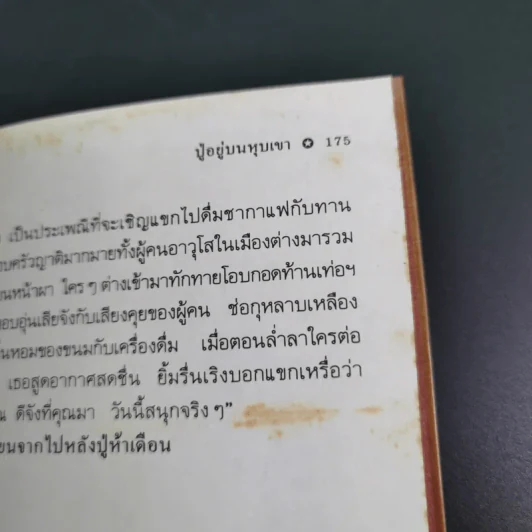 ปู่อยู่บนหุบเขา ✪ 175
เป็นประเพณีที่จะเชิญแขกไปดื่มชากาแฟกับทาน
บครัวญาติมากมายทั้งผู้คนอาวุโสในเมืองต่างมารวม
นหน้าผา ใครๆ ต่างเข้ามาทักทายโอบกอดท้านเท่อฯ
อบอุ่นเสียจังกับเสียงคุยของผู้คน ช่อกุหลาบเหลือง
นหอมของขนมกับเครื่องดื่ม เมื่อตอนล่ำลาใครต่อ
เธอสูดอากาศสดชื่น ยิ้มรื่นเริงบอกแขกเหรื่อว่า
ณ ดีจังที่คุณมา วันนี้สนุกจริงๆ”
ยนจากไปหลังปู่ห้าเดือน